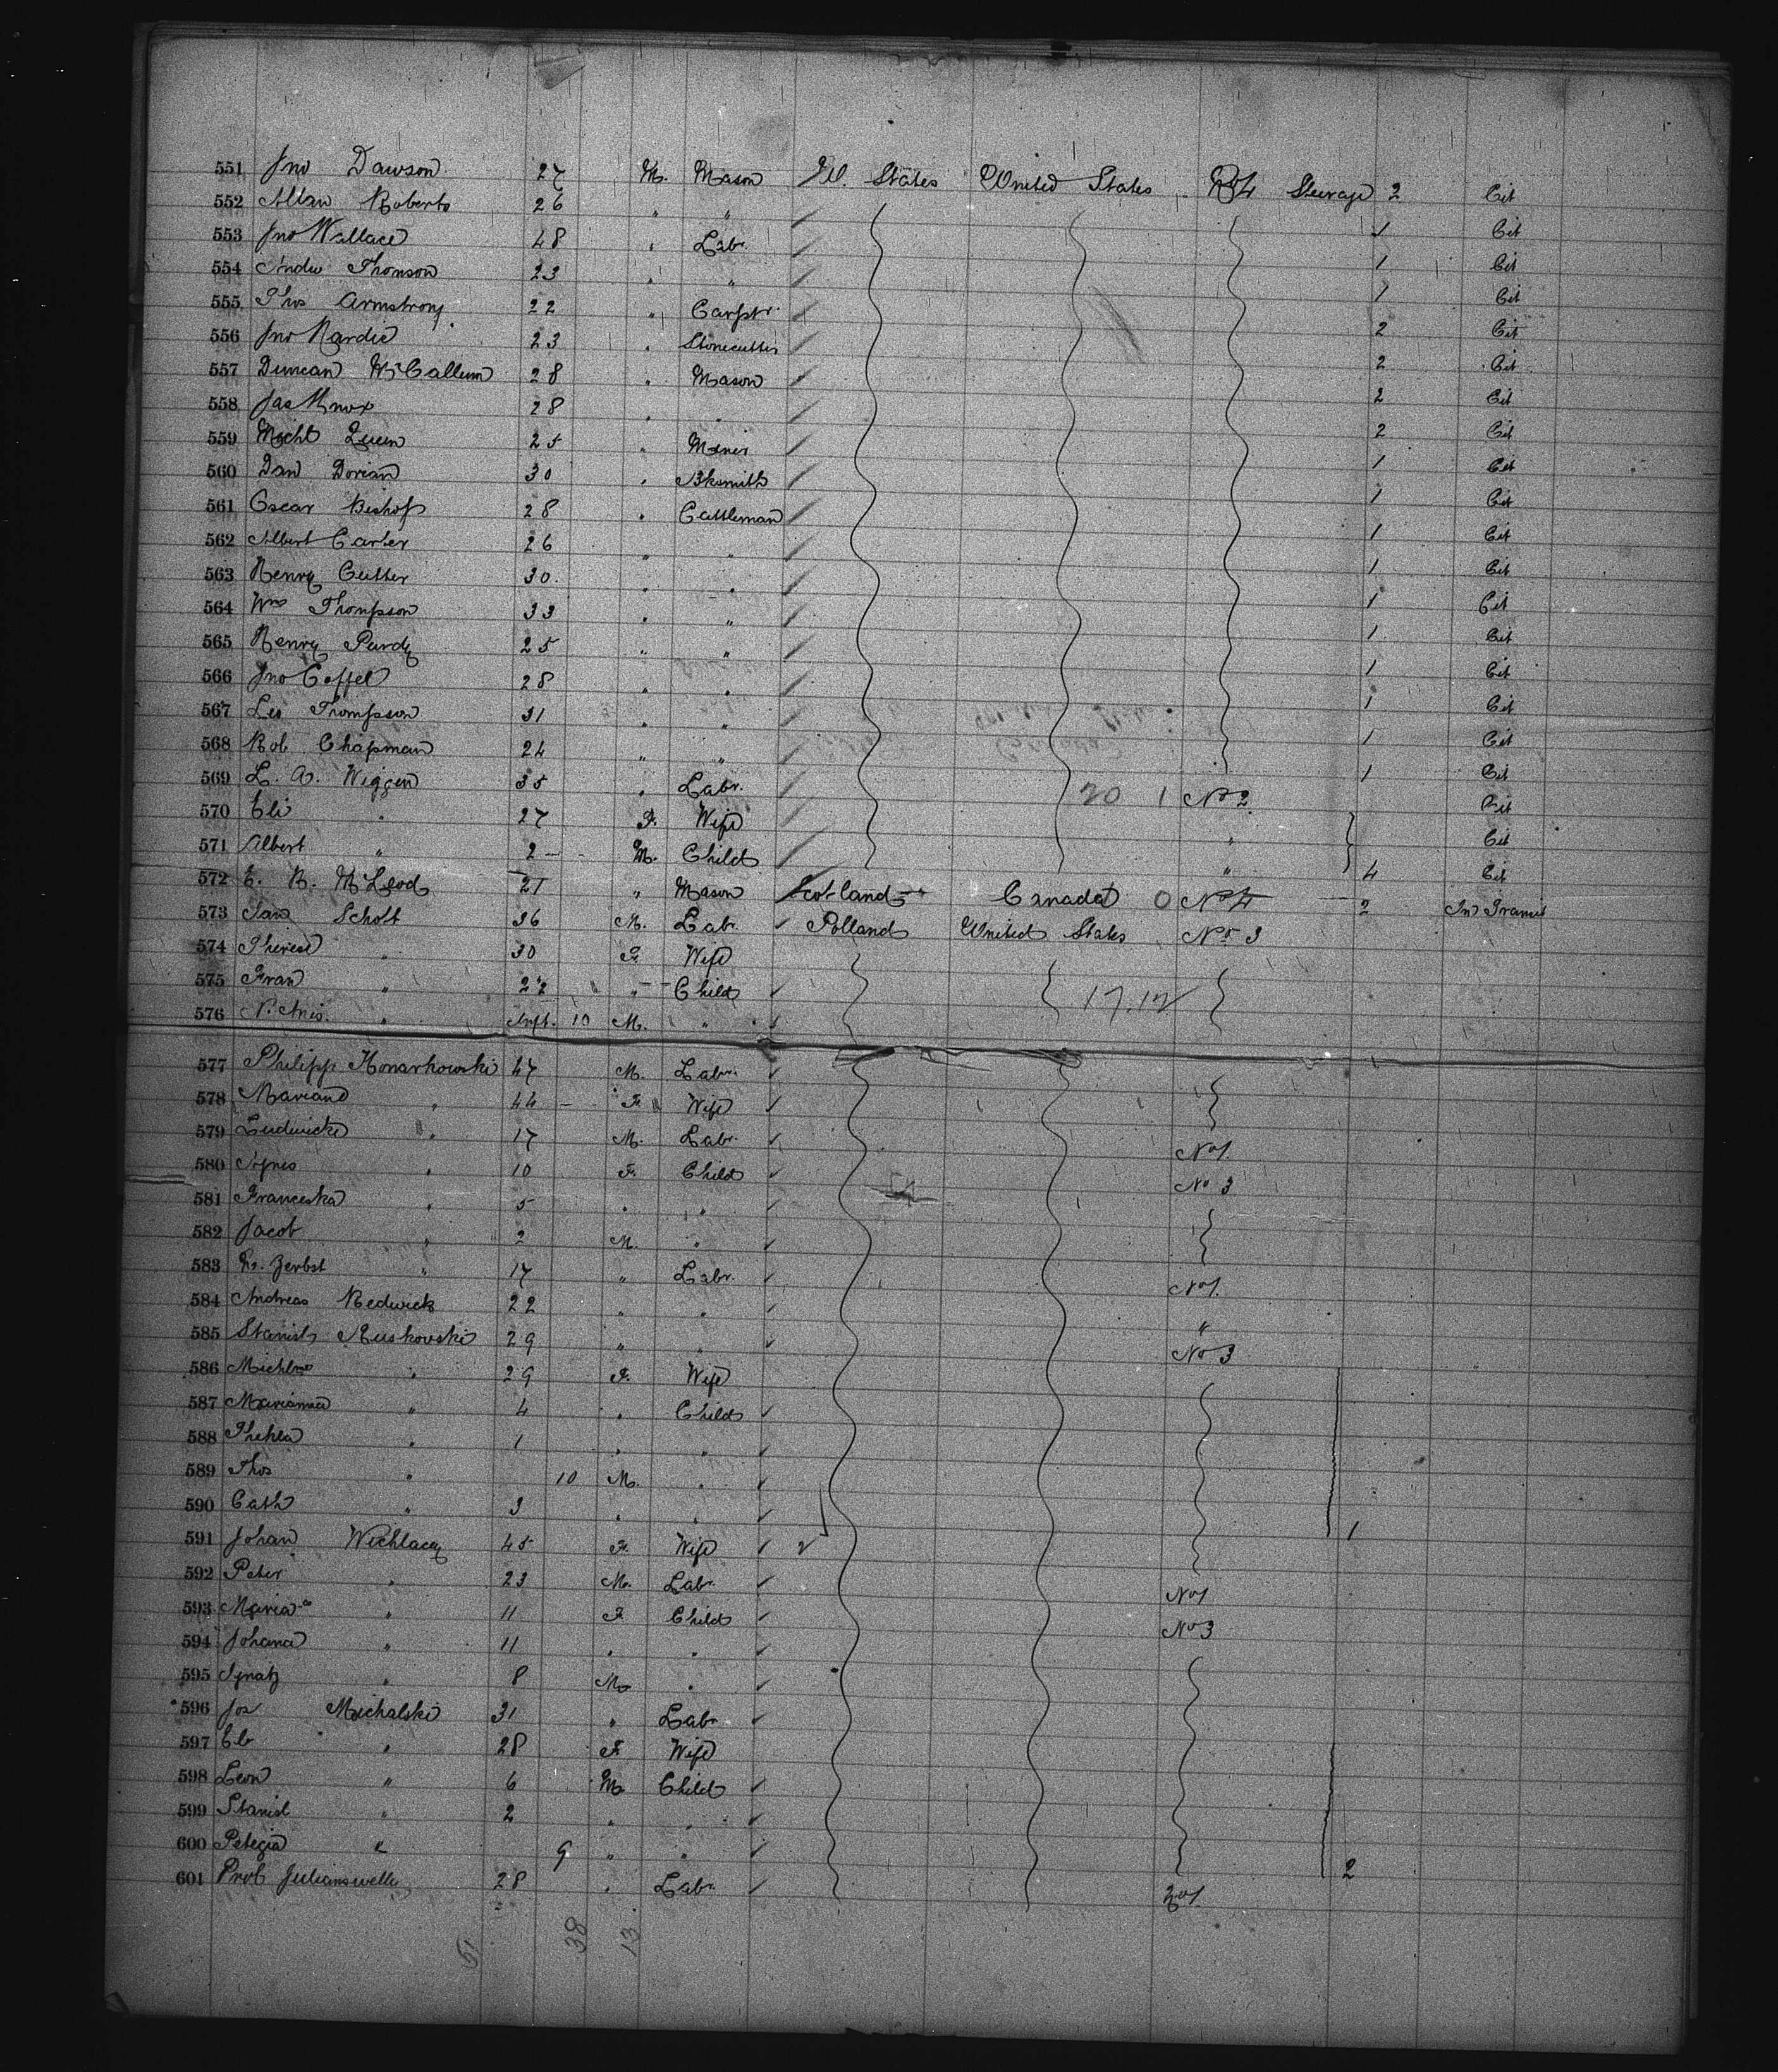 551 Jno Dawson 27 M. Mason U. States United States No 4 Steerage 2 Cit
552 Allan Roberts 26 " " 1 Cit
553 Jno Wallace 48 " Labr. 1 Cit
554 Andw Thomson 23 " " 1 Cit
555 Thos Armstrong 22 " Carptr. 2 Cit
556 Jno Hardie 23 " Stonecutter 2 Cit
557 Duncan McCallum 28 " Mason 2 Cit
558 Jas Knox 28 " " 2 Cit
559 Michl Queen 25 " Miner 1 Cit
560 Danl Dorian 30 " Bksmith 1 Cit
561 Oscar Bishop 28 " Cattleman 1 Cit
562 Albert Carter 26 " " 1 Cit
563 Henry Cutter 30 " " 1 Cit
564 Wm Thompson 33 " " 1 Cit
565 Henry Purdy 25 " " 1 Cit
566 Jno Coffel 28 " " 1 Cit
567 Leo Thompson 31 " " 1 Cit
568 Rob Chapman 24 " " 1 Cit
569 L. A. Wiggen 35 " Labr. 20 1 No 2 Cit
570 Eli " 27 F. Wife " Cit
571 Albert " 2 M. Child " 4 Cit
572 E. R. McLeod 21 " Mason Scotland Canada 0 No 4 2 In Transit
573 Jan Scholt 36 M. Labr. Polland United States No 3
574 Therese " 30 F. Wife
575 Fran " 22 " Child 17.12
576 " Inft. 10 M. "
577 Philipp Konarkowski 47 M. Labr.
578 Mariano " 44 F. Wife
579 Ludwick " 17 M. Labr. No 1
580 Agnes " 10 F. Child No 3
581 Franceska " 5 " "
582 Jacob " 2 M. "
583 Zerbst " 17 " Labr. No 1
584 Andreas Redwick 22 " " "
585 Stanisl Ruskowski 29 " " No 3
586 Michlna " 29 F. Wife
587 Marianna " 4 " Child
588 Thekla " 1 " "
589 Thos " 10 M. "
590 Cath " 3 " " 1
591 Johan Wichlacy 45 F. Wife
592 Peter " 23 M. Labr. No 1
593 Maria " 11 F. Child No 3
594 Johana " 11 " "
595 Ignatz " 8 M. "
596 Jos Michalski 31 " Labr
597 Eb " 28 F Wife
598 Leon " 6 M Child
599 Stanisl " 2 " "
600 Pelegia " 9 " " 2
601 Prob 28 " Labr. No 1
51 38 13